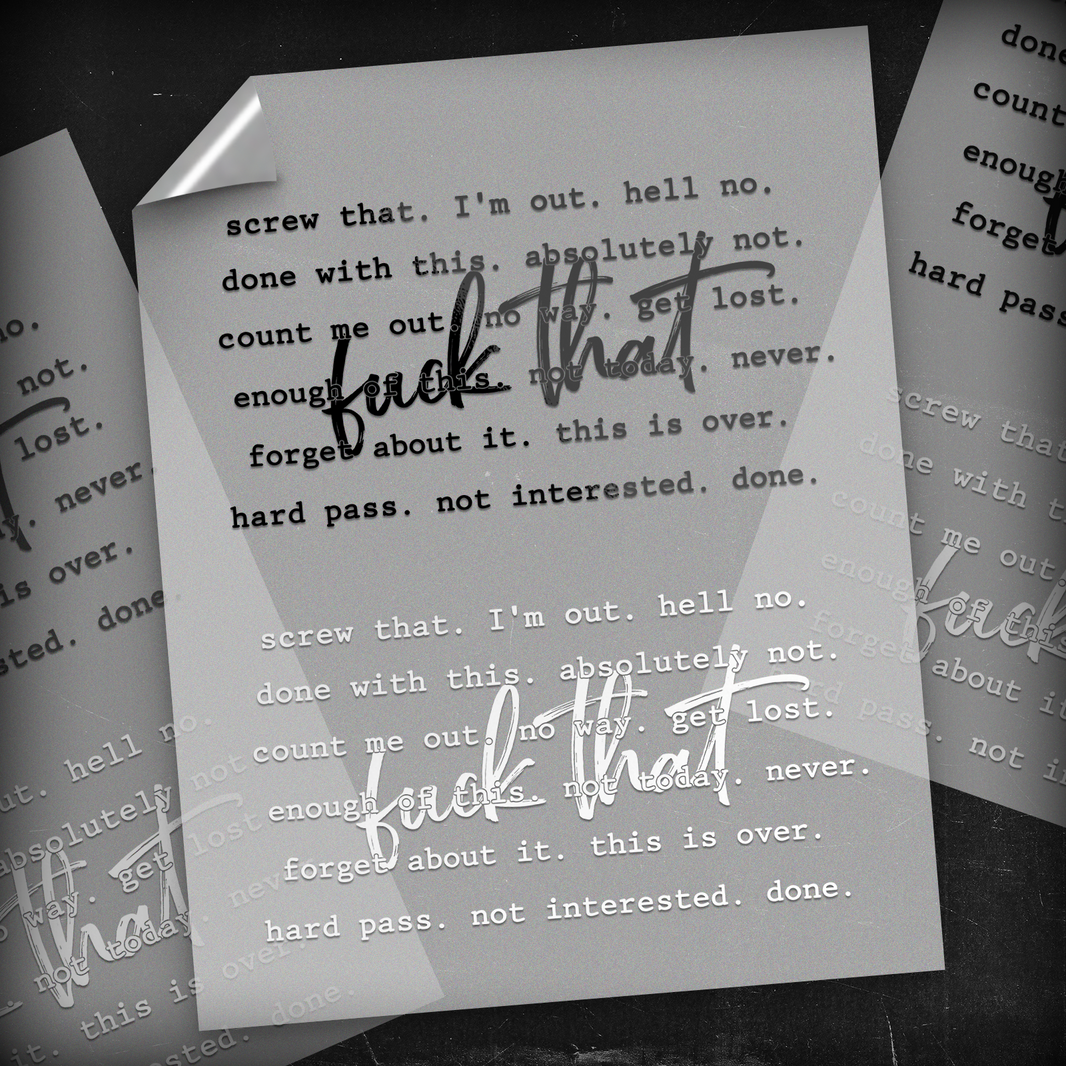 screw that. I'm out. hell no.
done with this. absolutely not.
count me out. no way. get lost.
fuck that
enough of this. not today. never.
forget about it. this is over.
hard pass. not interested. done.
screw that. I'm out. hell no.
done with this. absolutely not.
count me out. no way. get lost.
fuck that
enough of this. not today. never.
forget about it. this is over.
hard pass. not interested. done.
no.
not.
lost.
never.
is over.
done.
out. hell no.
absolutely not
way. get lost
that
not today.
this is over.
it.
done.
done
count
enough
forget
hard pass.
screw that
done with
count me out
fuck
enough of this
forget about it
hard pass. not in